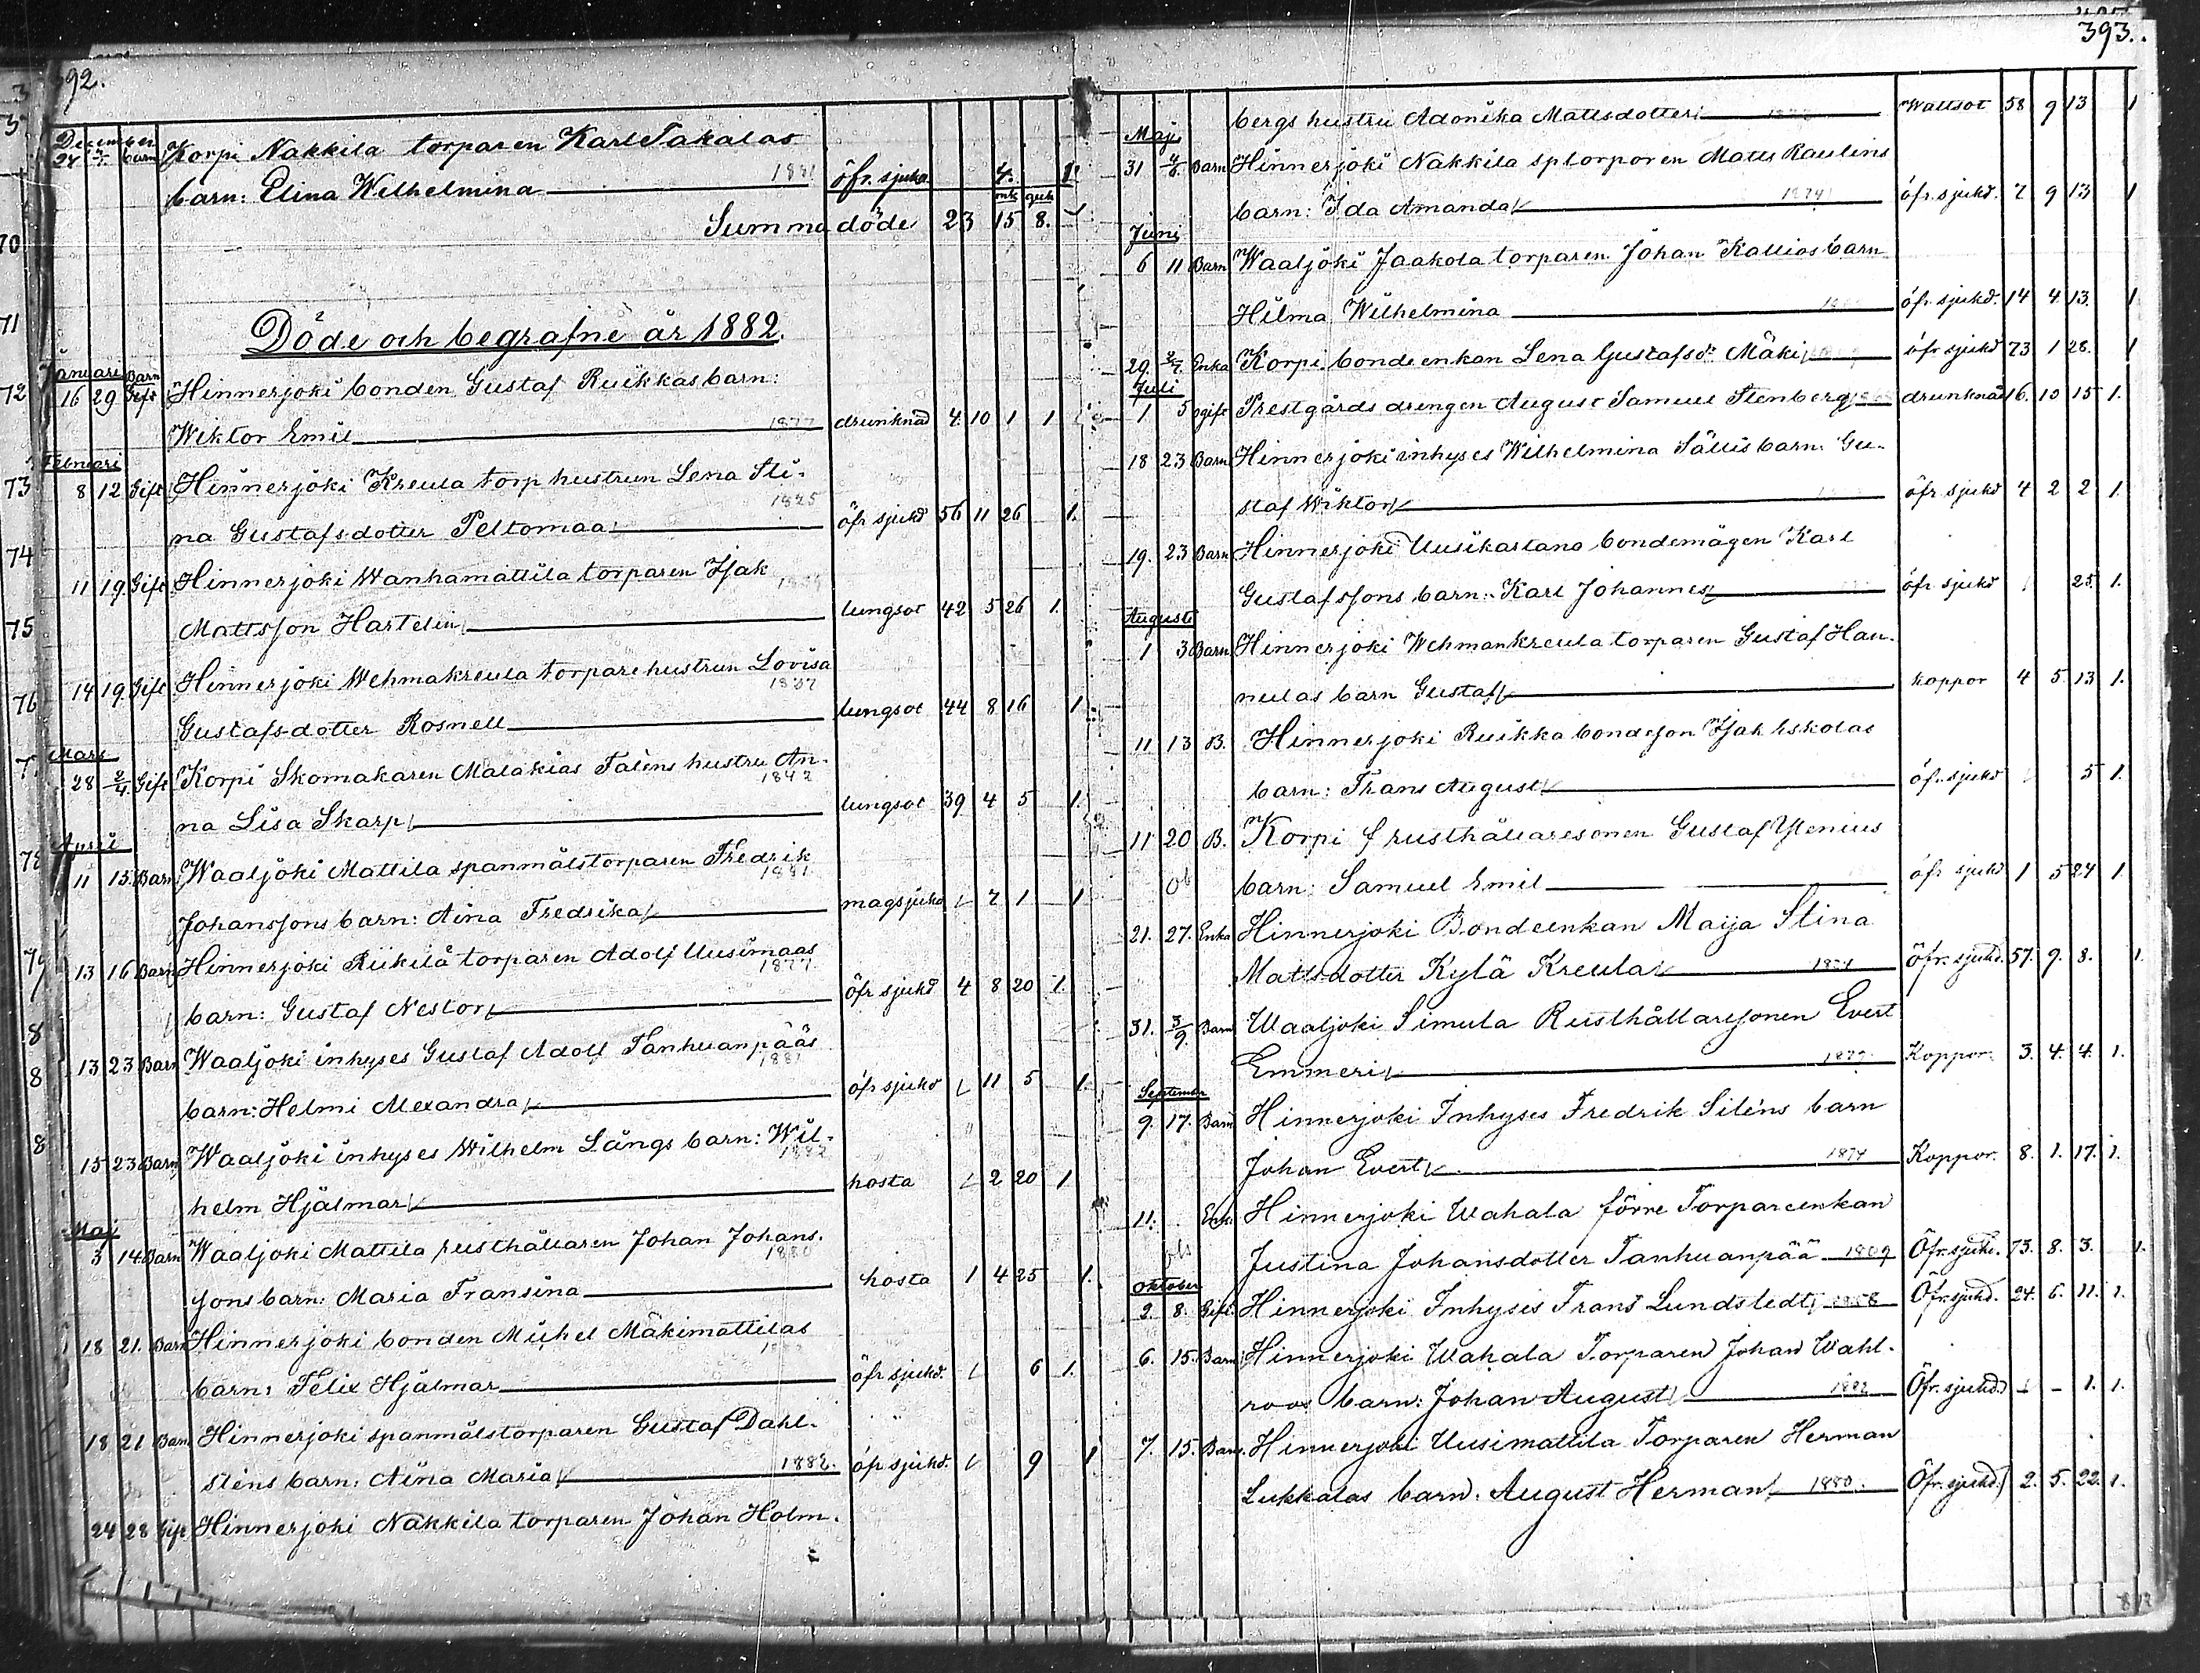 392.
December
24 barn Korpi Nakkila torparen Karl Takalas
barn: Elina Wilhelmina 1881 öfr. sjukd. 4. 1
mk quk
Summa döde 23 15 8.
Döde och begrafne år 1882.
Januari
16 29 Barn Gift Hinnerjoki bonden Gustaf Ruikkas barn:
Wiktor Emil 1877 drunknad 4. 10 1 1
Februari
8 12 Gift Hinnerjoki Kreula torp hustrun Lena Sti-
na Gustafsdotter Peltomaa 1825 öfr sjukd 56 11 26 1.
11 19. Gift Hinnerjoki Wanhamattila torparen Isak
Mattsson Hartelin lungsot 42 5 26 1.
14 19. Gift Hinnerjoki Wehmakreula torparehustrun Lovisa
Gustafsdotter Rosnell 1837 lungsot 44 8 16 1.
Mars
28 2/4. Gift Korpi Skomakaren Malakias Taléns hustru An-
na Lisa Skarp 1842 lungsot 39 4 5 1.
April
11 15. Barn Waaljoki Mattila spanmålstorparen Fredrik
Johanssons barn: Aina Fredrika 1881 magsjukd 7 1 1
13 16 Barn Hinnerjoki Riikilä torparen Adolf Uusimaas
barn: Gustaf Nestor 1877 öfr sjukd 4 8 20 1.
13 23 Barn Waaljoki inhyses Gustaf Adolf Tanhuanpääs
barn: Helmi Alexandra 1881 öfr sjukd 11 5 1.
15 23 Barn Waaljoki inhyses Wilhelm Långs barn: Wil-
helm Hjälmar 1882 hosta 2 20 1
Maj
3 14. Barn Waaljoki Mattila rusthållaren Johan Johans-
sons barn: Maria Fransina 1880 hosta 1 4 25 1.
18 21. Barn Hinnerjoki bonden Michel Mäkimattilas
barn: Felix Hjälmar öfr sjukd. 6 1.
18 21 Barn Hinnerjoki spanmålstorparen Gustaf Dahl-
sténs barn: Aina Maria 1882. öfr sjukd. 9 1
24 28 Gift Hinnerjoki Nakkila torparen Johan Holm-
393.
bergs hustru Adonika Mattsdotter Wattsot 58 9 13 1
Maj
31 4/6. Barn Hinnerjoki Nakkila sptorparen Matts Raulins
barn: Ida Amanda 1874 öfr. sjukd. 7 9 13 1
Juni
6 11 Barn Waaljoki Jaakola torparen Johan Kallios barn
Hilma Wilhelmina öfr sjukd. 14 4 13. 1
29 2/7. Enka Korpi bonde enkan Lena Gustafsd:r Mäki öfr sjukd 73 1 28. 1
Juli
1 5 ogift Prestgårds drengen August Samuel Stenberg drunknad 16. 10 15 1.
18 23 Barn Hinnerjoki inhyses Wilhelmina Sällis barn: Gu-
staf Wiktor öfr sjukd 4 2 2 1.
19. 23 Barn Hinnerjoki Uusikartano bondemågen Karl
Gustafssons barn: Karl Johannes öfr sjukd 25. 1.
Augusti
1 3 Barn Hinnerjoki Wehmankreula torparen Gustaf Han-
nulas barn Gustaf koppor 4 5 13 1.
11 13 B. Hinnerjoki Ruikka bondeson Isak Eskolas
barn: Frans August öfr. sjukd 5 1.
11 20 B. Korpi f rusthållaresonen Gustaf Ylenius
barn: Samuel Emil öfr sjukd 1 5 24 1
21. 27. Enka Hinnerjoki Bondeenkan Maija Stina
Mattsdotter Kylä Kreula 1824 Öfr. sjukd. 57. 9. 8. 1.
31. 3/9. Barn Waaljoki Simula Rusthållaresonen Evert
Emmeri 1879 Koppor. 3. 4. 4. 1.
September
9. 17. Barn Hinnerjoki Inhyses Fredrik Siléns barn
Johan Evert 1874 Koppor. 8. 1. 17. 1.
11. Enk. Hinnerjoki Wahala förre Torpareenkan
Justina Johansdotter Tanhuanpää 1809 Öfr. sjukd. 73. 8. 3. 1.
Oktober
2. 8. Gift. Hinnerjoki Inhyses Frans Lundstedt 1858 Öfr. sjukd. 24. 6. 11. 1.
6. 15. Barn Hinnerjoki Wahala Torparen Johan Wahl-
roos barn: Johan August 1882 Öfr. sjukd. - - 1. 1.
7. 15. Barn. Hinnerjoki Uusimattila Torparen Herman
Lukkalas barn. August Herman 1880. Öfr. sjukd. 2. 5. 22. 1.